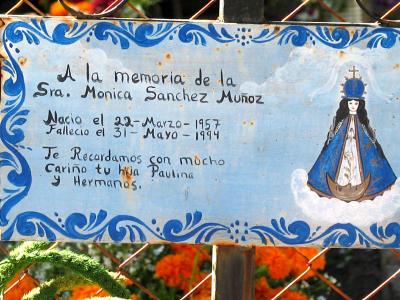 A la memoria de la
Sra. Monica Sanchez Muñoz
Nacio el 22-Marzo-1957
Fallecio el 31-Mayo-1994
Te Recordamos con mucho
Cariño tu hija Paulina
y Hermanos.